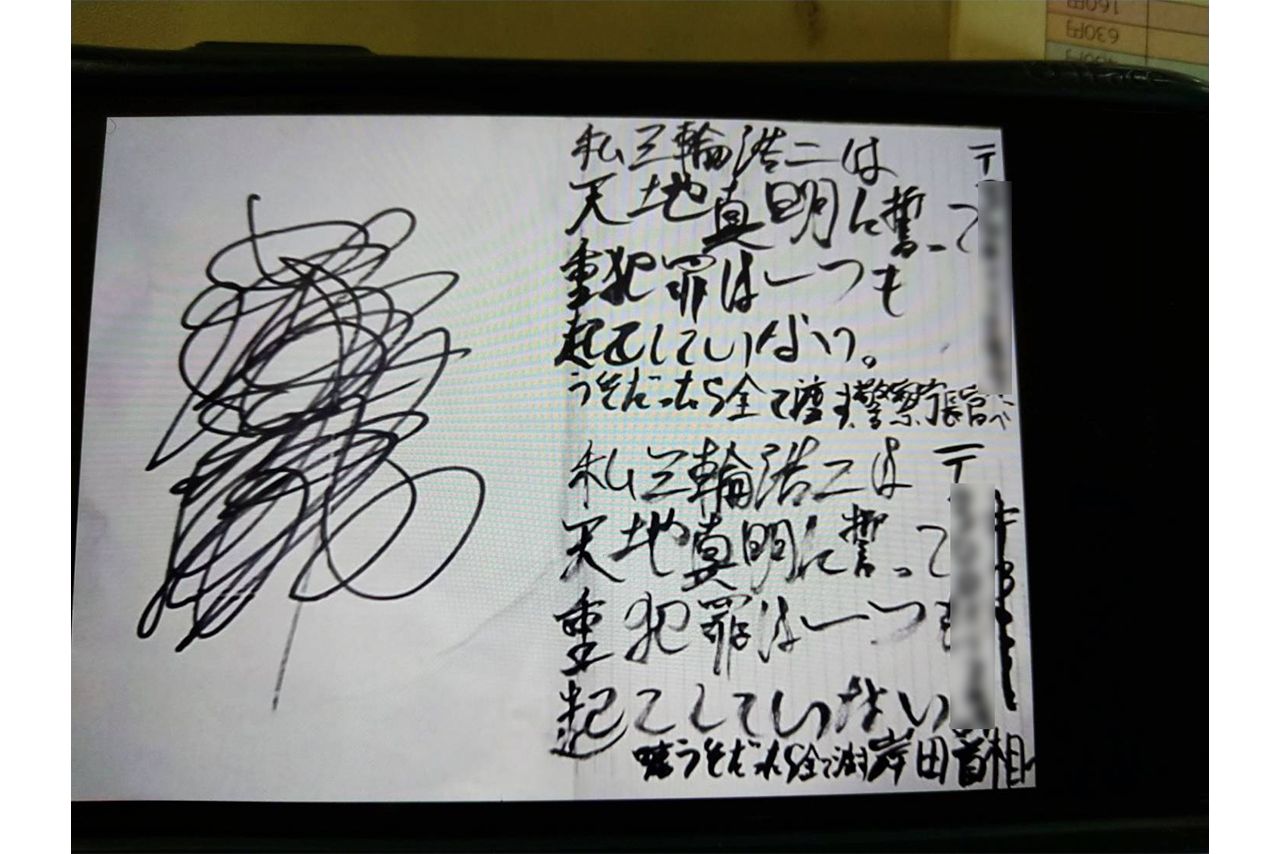 160円
630円
私三輪浩二は 〒
天地真明に誓って
重犯罪は一つも
起こしていない。
うそだったら全て 警察庁長官へ
私三輪浩二は 〒
天地真明に誓って
重犯罪は一つも
起こしていない
うそだったら全て 岸田首相へ